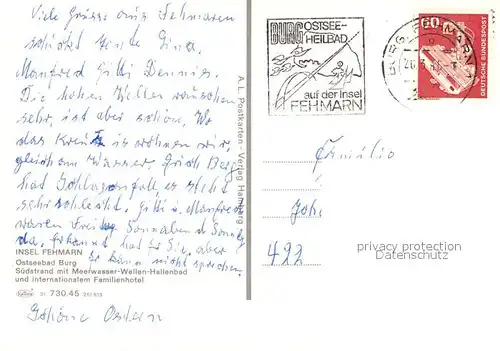 Viele Grüsse aus Fehmaren
schickt Heute Gina,
Manfred Gitti Dennis
Die hohen Wellen rauschen
sehr, ist aber schön. Wo
das Kreuz is wohnen wir,
gleich am Wasser. Erich Berg
hat Schlaganfall er steht
sehr schlecht. Gitti u. Manfred
waren Freitag Sonnabend Sonntg
da. Erkannt hat Er Sie, aber
Er kann nicht sprechen.
INSEL FEHMARN
Ostseebad Burg
Südstrand mit Meerwasser-Wellen-Hallenbad
und internationalem Familienhotel
31 730.45
Schöne Ostern
A. L. Postkarten - Verlag Hamburg
BURG OSTSEE-
HEILBAD
auf der Insel
FEHMARN
60
DEUTSCHE BUNDESPOST
Familie
492
privacy protection
Datenschutz